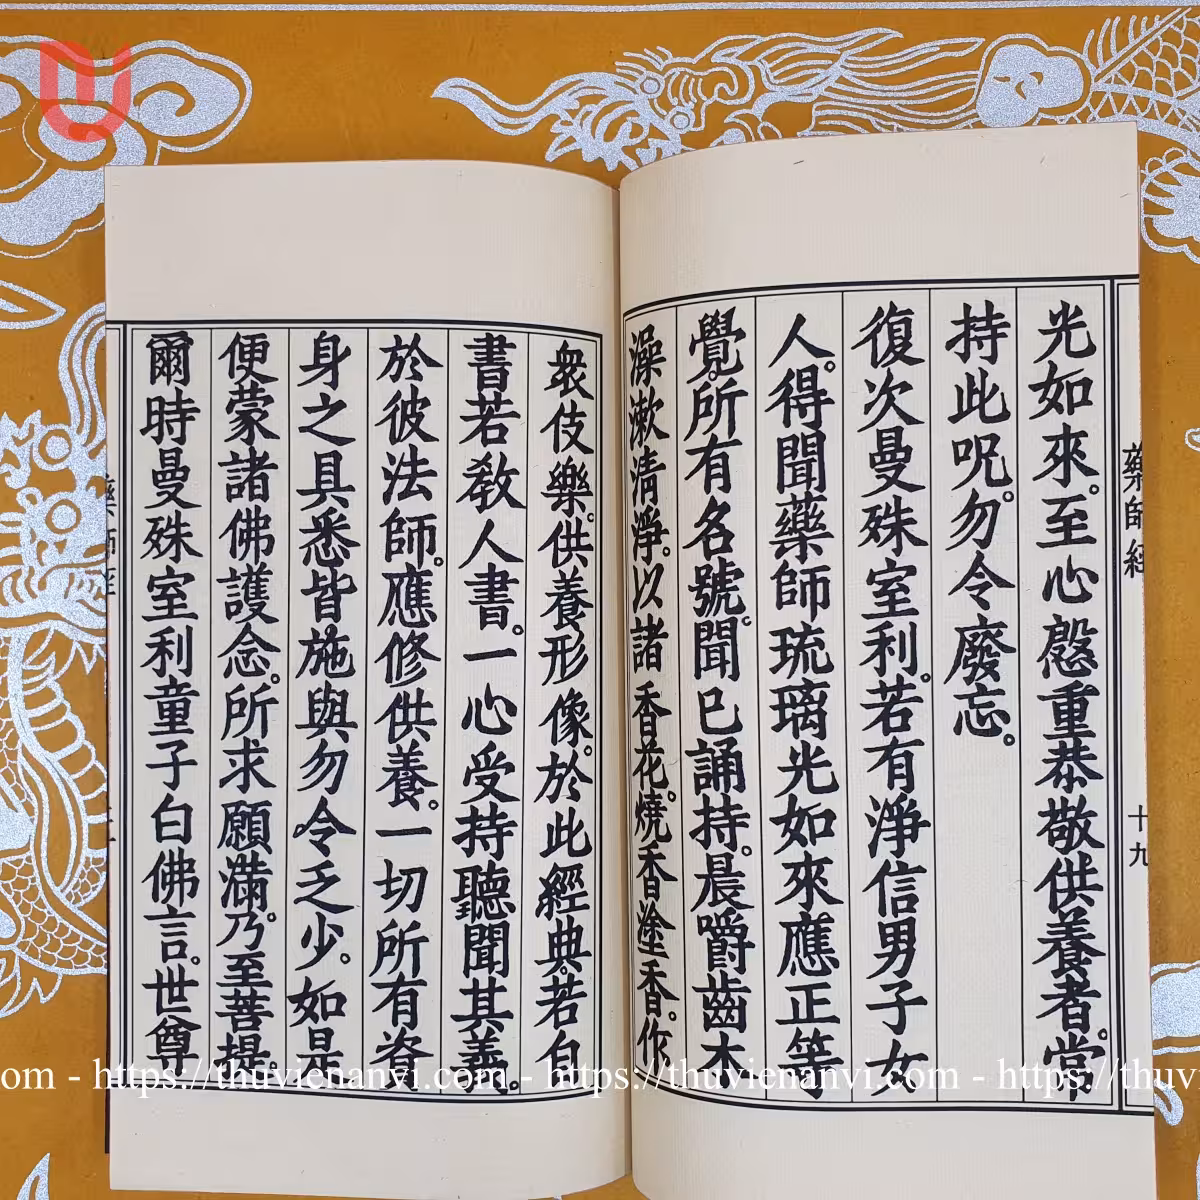 光如來。至心慇重恭敬供養者。常
持此呪。勿令廢忘。
復次曼殊室利。若有淨信男子女
人。得聞藥師琉璃光如來應正等
覺。所有名號。聞已誦持。晨嚼齒木
澡漱清淨。以諸香花。燒香塗香。作
藥師經 十九
眾伎樂。供養形像。於此經典。若自
書若教人書。一心受持聽聞其義。
於彼法師。應修供養。一切所有資
身之具悉皆施與勿令乏少。如是
便蒙諸佛護念。所求願滿。乃至菩提。
爾時曼殊室利童子白佛言。世尊
https://thuvienanvi.com - https://thuvienanvi.com